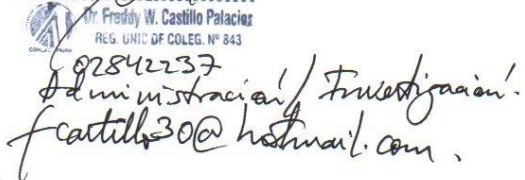 Dr. Freddy W. Castillo Palacios
REG. UNIC DE COLEG. Nº 843
02842237
Administración / Investigación.
fcastillo30@hotmail.com.